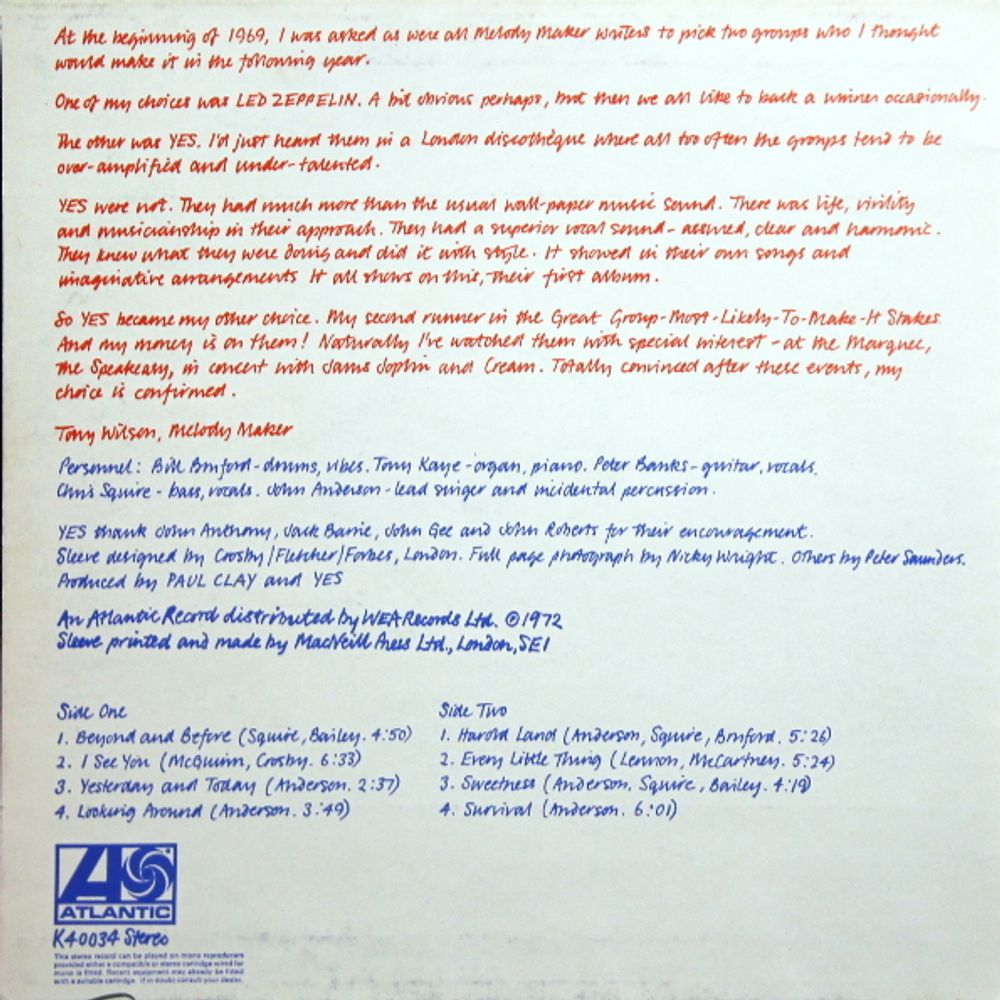 At the beginning of 1969, I was asked as were all Melody Maker writers to pick two groups who I thought
would make it in the following year.
One of my choices was LED ZEPPELIN. A bit obvious perhaps, but then we all like to back a winner occasionally.
The other was YES. I'd just heard them in a London discothèque where all too often the groups tend to be
over-amplified and under-talented.
YES were not. They had much more than the usual wall-paper music sound. There was life, virility
and musicianship in their approach. They had a superior vocal sound - assured, clear and harmonic.
They knew what they were doing and did it with style. It showed in their own songs and
imaginative arrangements It all shows on this, their first album.
So YES became my other choice. My second runner in the Great Group-Most-Likely-To-Make-It Stakes.
And my money is on them! Naturally I've watched them with special interest - at the Marquee,
the Speakeasy, in concert with Janis Joplin and Cream. Totally convinced after these events, my
choice is confirmed.
Tony Wilson, Melody Maker
Personnel: Bill Bruford - drums, vibes. Tony Kaye - organ, piano. Peter Banks - guitar, vocals.
Chris Squire - bass, vocals. John Anderson - lead singer and incidental percussion.
YES thank John Anthony, Jack Barrie, John Gee and John Roberts for their encouragement.
Sleeve designed by Crosby/Fletcher/Forbes, London. Full page photograph by Nicky Wright. Others by Peter Saunders.
Produced by PAUL CLAY and YES
An Atlantic Record distributed by WEA Records Ltd. ©1972
Sleeve printed and made by MacNeill Press Ltd., London, SE1
Side One
1. Beyond and Before (Squire, Bailey. 4:50)
2. I See You (McGuinn, Crosby. 6:33)
3. Yesterday and Today (Anderson. 2:37)
4. Looking Around (Anderson. 3:49)
Side Two
1. Harold Land (Anderson, Squire, Bruford. 5:26)
2. Every Little Thing (Lennon, McCartney. 5:24)
3. Sweetness (Anderson, Squire, Bailey. 4:19)
4. Survival (Anderson. 6:01)
ATLANTIC
K40034 Stereo
This stereo record can be played on mono reproducers
provided either a compatible or stereo cartridge wired for
mono is fitted. Recent equipment may already be fitted
with a suitable cartridge. If in doubt consult your dealer.